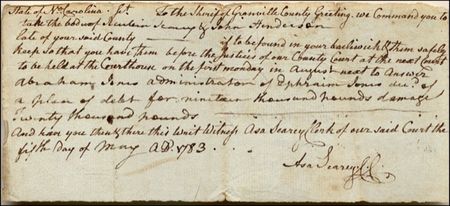 State of No. Carolina Sct. To the Sheriff of Granville County Greeting. we Command you to
take the bodies of Reuben Searcy & John Henderson
late of your said County if to be found in your bailiwick & them safely
keep so that you have them before the Justices of our County Court at the next Court
to be held at the Courthouse on the first monday in August next to Answer
Abraham Jones administrator of Ephraim Jones decd. of
a plea of debt for nineteen thousand pounds damage
Twenty thousand pounds
And have you then & there this Writ Witness Asa Searcy Clerk of our said Court the
fifth Day of May AD. 1783
Asa Searcy CC